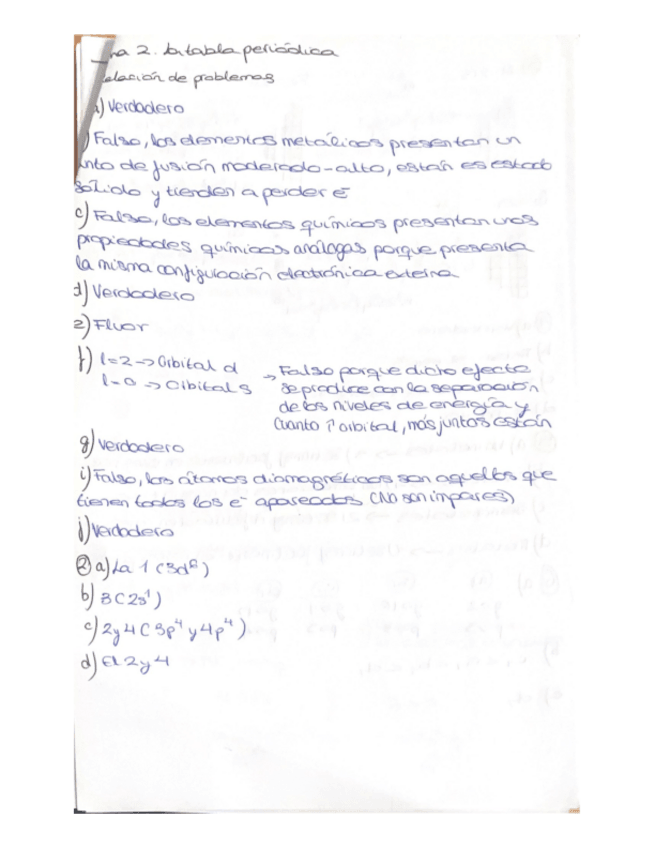 na 2. La tabla periódica
elación de problemas
a) Verdadero
) Falso, los elementos metálicos presentan un
unto de fusión moderado-alto, están es estado
sólido y tienden a perder e-
c) Falso, los elementos químicos presentan unas
propiedades químicas análogas porque presenta
la misma configuración electrónica externa
d) Verdadero
e) Fluor
f) l=2 → Orbital d → Falso porque dicho efecto
l=0 → Orbital s se produce con la separación
de los niveles de energía y
cuanto ↑ orbital, más juntos están
g) Verdadero
i) Falso, los átomos diamagnéticos son aquellos que
tienen todos los e- apareados (No son impares)
j) Verdadero
② a) La 1 (3d⁶)
b) 3 (2s¹)
c) 2 y 4 (3p⁴ y 4p⁴)
d) El 2 y 4